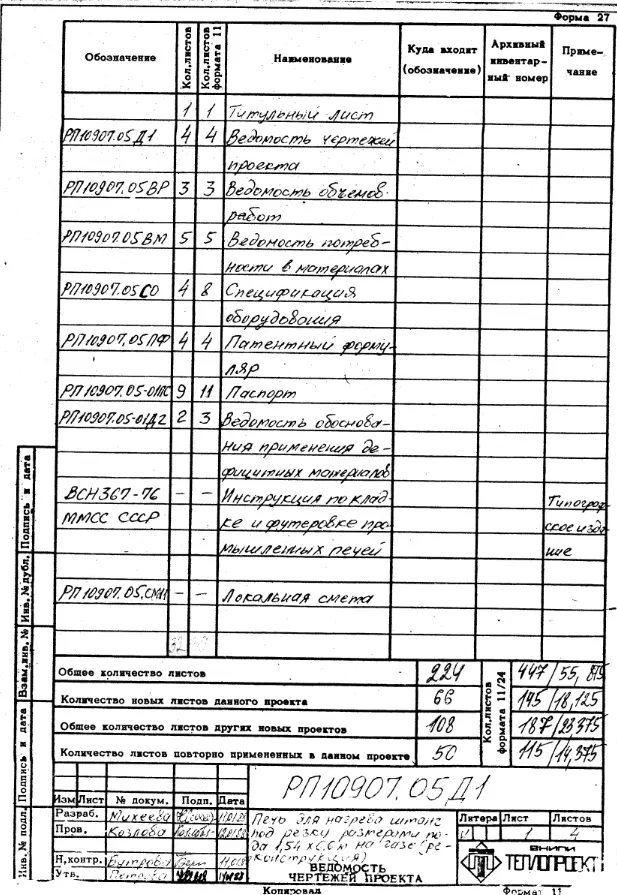 Форма 27
Обозначение Кол.листов Кол.листов формата 11 Наименование Куда входит (обозначение) Архивный инвентар- ный номер Приме- чание
1 1 Титульный лист
РП10907.05Д1 4 4 Ведомость чертежей
проекта
РП10907.05ВР 3 3 Ведомость объемов
работ
РП10907.05ВМ 5 5 Ведомость потреб-
ности в материалах
РП10907.05СО 4 8 Спецификация
оборудования
РП10907.05ПФ 4 4 Патентный форму-
ляр
РП10907.05-01ПС 9 11 Паспорт
РП10907.05-01Д2 2 3 Ведомость обоснова-
ния применения де-
фицитных материалов
ВСН367-76 - - Инструкция по клад- Типограф
ММСС СССР ке и футеровке про- ское изда
мышленных печей ние
РП10907.05.СМ1 - - Локальная смета
32
Общее количество листов 224 447/55,875
Количество новых листов данного проекта 66 145/18,125
Общее количество листов других новых проектов 108 187/23,375
Количество листов повторно примененных в данном проекте 50 115/14,375
Кол.листов формата 11/24
РП10907.05Д1
Изм Лист № докум. Подп. Дата
Разраб. Михеева
Пров. Козлова
Н.контр. Бутрова
Утв. Петрова
Печь для нагрева штанг
под резку размерами по-
да 1,54 х 0,6 м на газе (ре-
конструкция)
ВЕДОМОСТЬ
ЧЕРТЕЖЕЙ ПРОЕКТА
Литера Лист Листов
1 4
ВНИПИ
ТЕПЛОПРОЕКТ
Инв.№ подл. Подпись и дата Взам.инв.№ Инв.№дубл. Подпись и дата
Копировал Формат 11